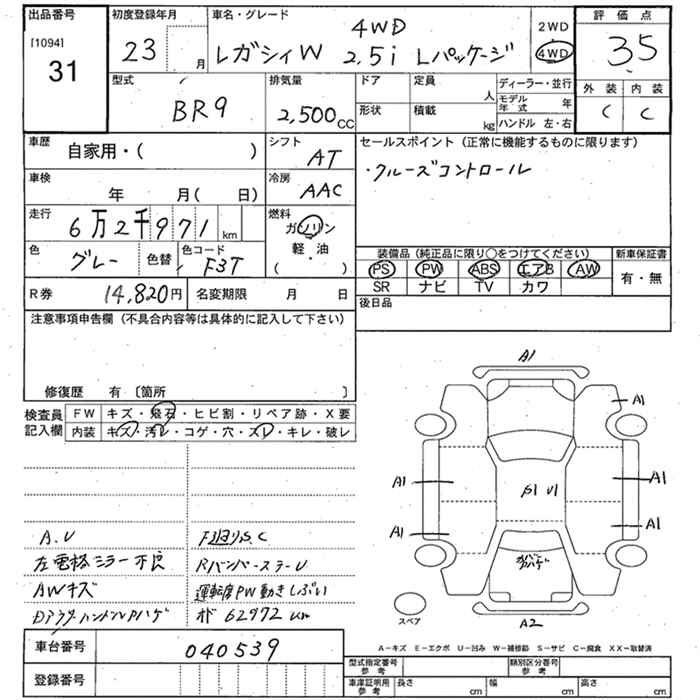 出品番号 初度登録年月 車名・グレード 4WD 2WD 評価点
[1094] 31 23 月 レガシィW 2,5i Lパッケージ 4WD 35
型式 排気量 ドア 定員 人 ディーラー・並行 外装 内装
BR9 2,500cc 形状 積載 kg モデル年式 年 C C
ハンドル 左・右
車歴 自家用・( ) シフト AT セールスポイント (正常に機能するものに限ります)
車検 年 月( 日) 冷房 AAC ・クルーズコントロール
走行 6万2千971km 燃料 ガソリン
軽・油
( )
色 グレー 色替 色コード F3T 装備品 (純正品に限り○をつけてください) 新車保証書
PS PW ABS エアB AW 有・無
SR ナビ TV カワ
R券 14,820円 名変期限 月 日 後日品
注意事項申告欄 (不具合内容等は具体的に記入して下さい)
修復歴 有 〔箇所 〕
検査員記入欄 FW キズ・飛石・ヒビ割・リペア跡・X要
内装 キズ・汚レ・コゲ・穴・スレ・キレ・破レ
A1
A1
A1 A1
β1 U1
A1 A1
A.U
左電格ミラー不良 RバンパーステーU
AWキズ 運転席PW動きしぶい
62972km
スペア A2
A-キズ E-エクボ U-凹み W-補修跡 S-サビ C-腐食 XX-取替済
車台番号 040539
型式指定番号 参考 類別区分番号 参考
登録番号 車庫証明用 参考 長さ cm 幅 cm 高さ cm